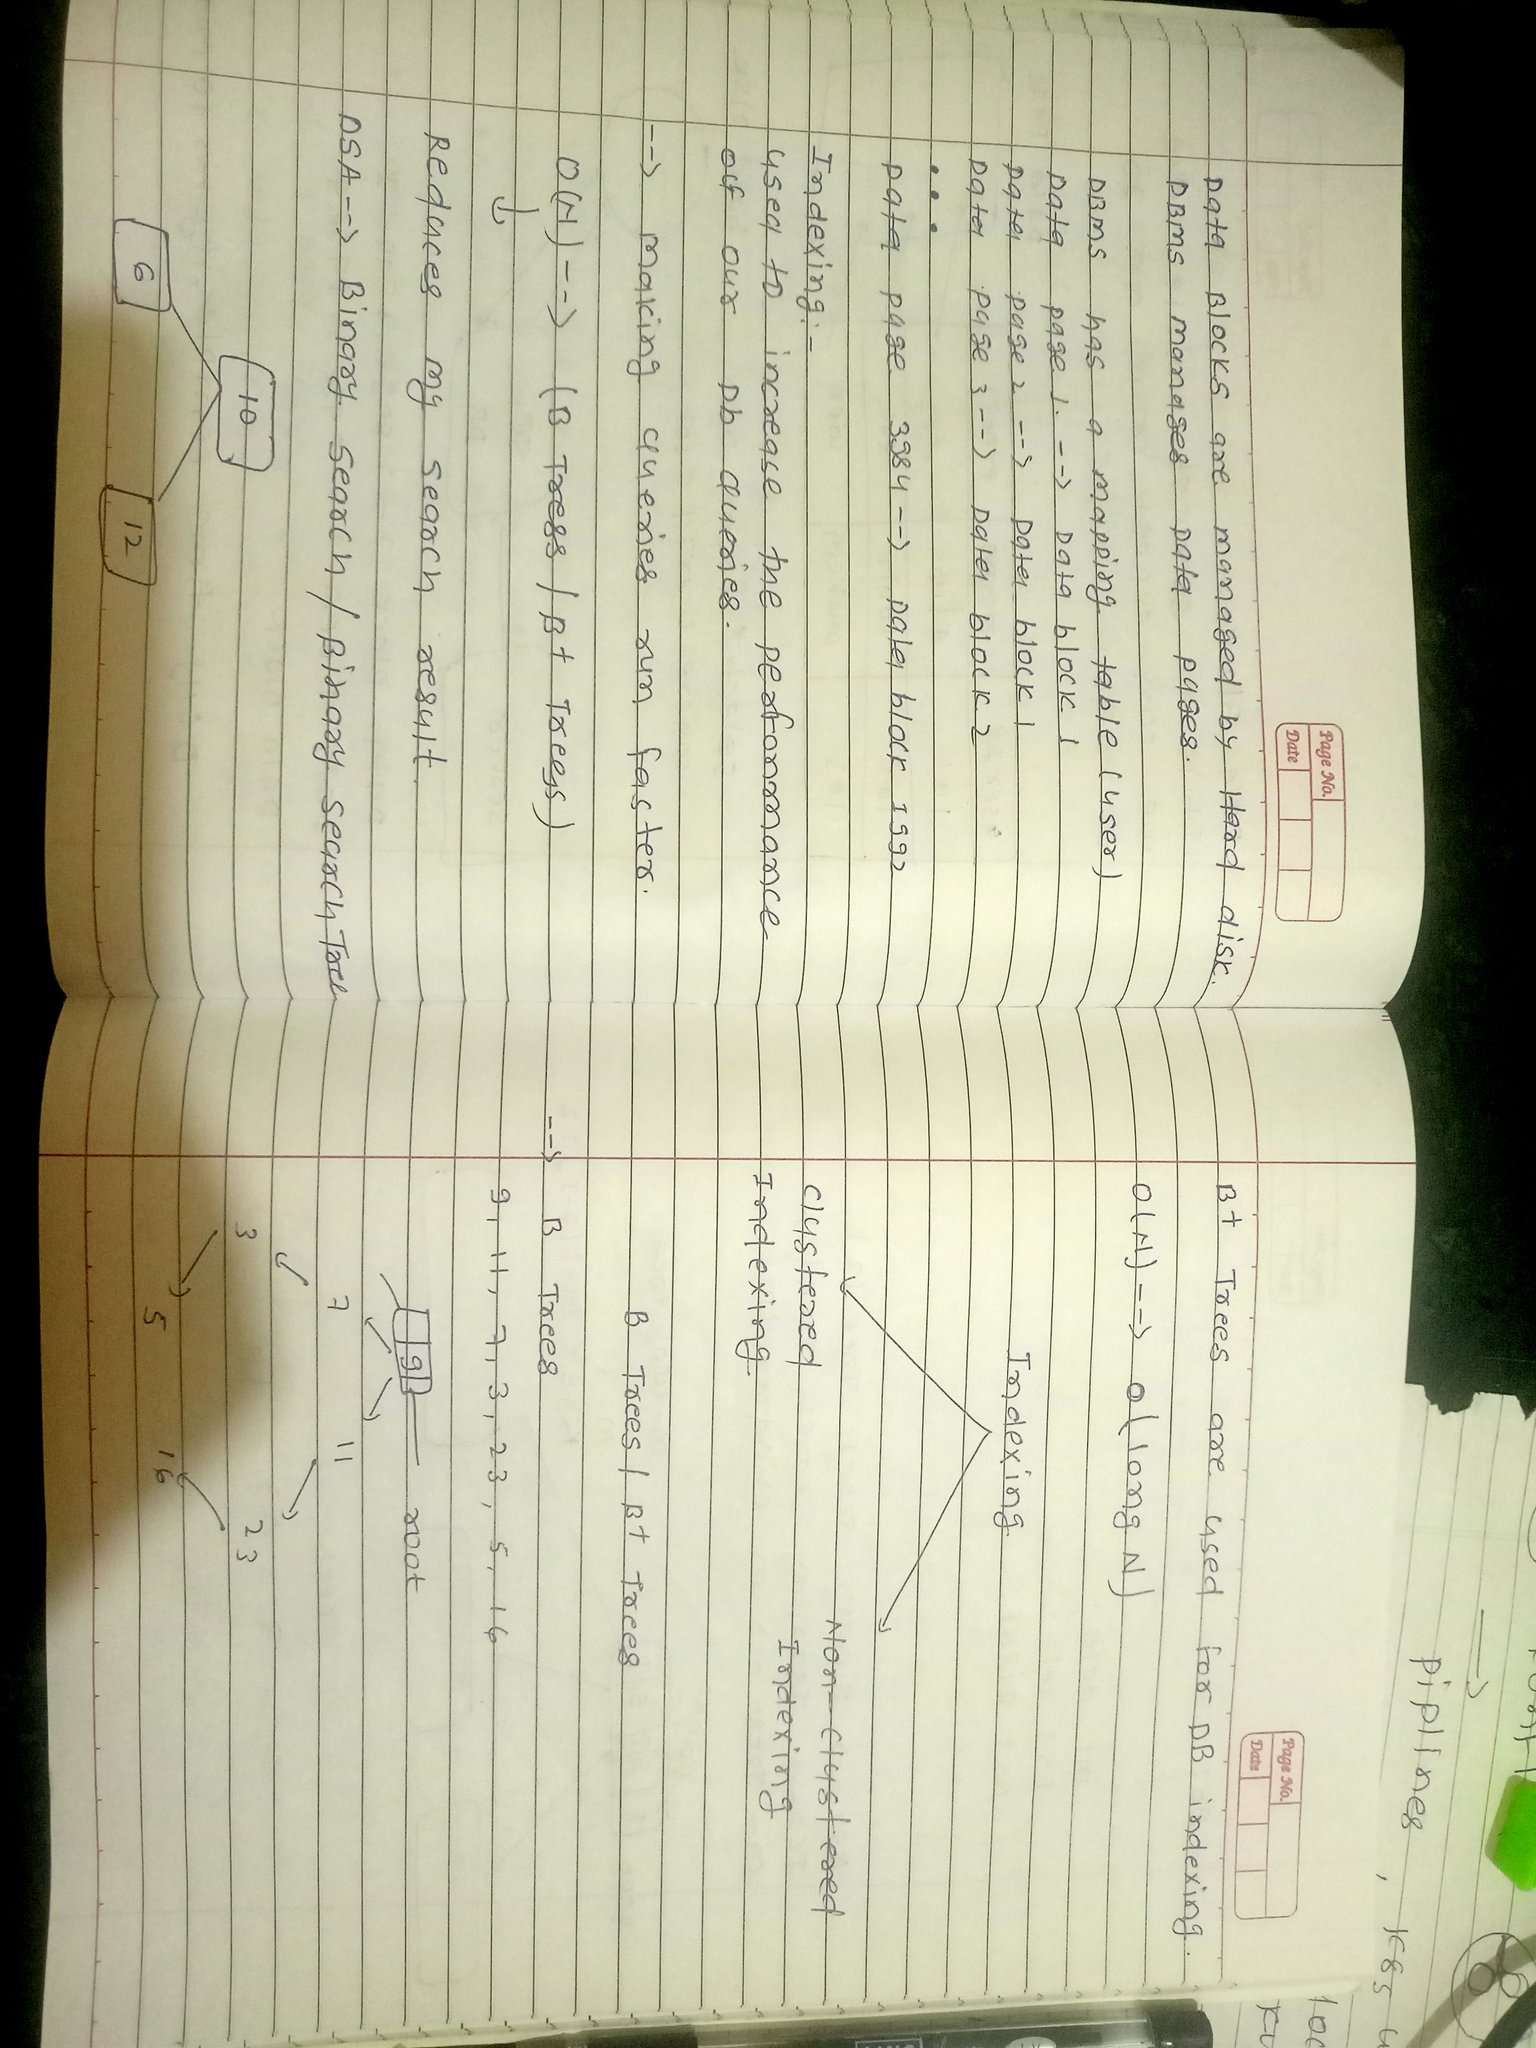 Page No.
Date
Data Blocks are managed by Hard disk.
DBMS manages data pages.
DBMS has a mapping table (user)
Data page 1 --> Data block 1
Data page 2 --> Data block 1
Data page 3 --> Data block 2
...
Data page 3984 --> Data block 1992
Indexing:-
used to increase the perfonrmance
of our Db queries.
--> making queries run faster.
O(N) --> (B Tress / B+ Trees)
Reduces my search result.
DSA --> Binary search / Binary search Tree
10
6
12
Page No.
Date
B+ Trees are used for DB indexing.
O(N) --> O(long N)
Indexing
Clustered
Indexing
Non-Clustered
Indexing
B Trees / B+ Trees
--> B Trees
9, 11, 7, 3, 23, 5, 16
9
root
7
11
3
23
5
16
piplines, K8s